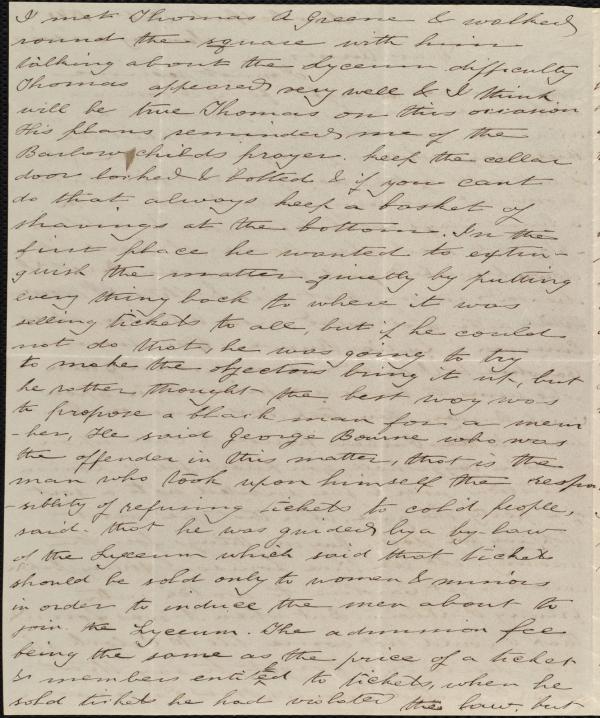 I met Thomas A Greene & walked
round the square with him
talking about the Lyceum difficulty
Thomas appeared very well & I think
will be true Thomas on this occasion
His plans reminded me of the
Barlow childs prayer. keep the cellar
door locked & bolted & if you cant
do that always keep a basket of
shavings at the bottom. In the
first place he wanted to extin-
guish the matter quietly by putting
every thing back to where it was
selling tickets to all, but if he could
not do that, he was going to try
to make the objectors bring it up, but
he rather thought the best way was
to propose a black man for a mem
-ber, He said George Bourne who was
the offender in this matter, that is the
man who took upon himself the respon
-siblity of refusing tickets to cold people,
said. that he was guided by a by-law
of the Lyceum which said that tickets
should be sold only to women & minors
in order to induce the men about to
join the Lyceum. The admission fee
being the same as the price of a ticket
& members entitled to tickets, when he
sold tickets he had violated the law, but